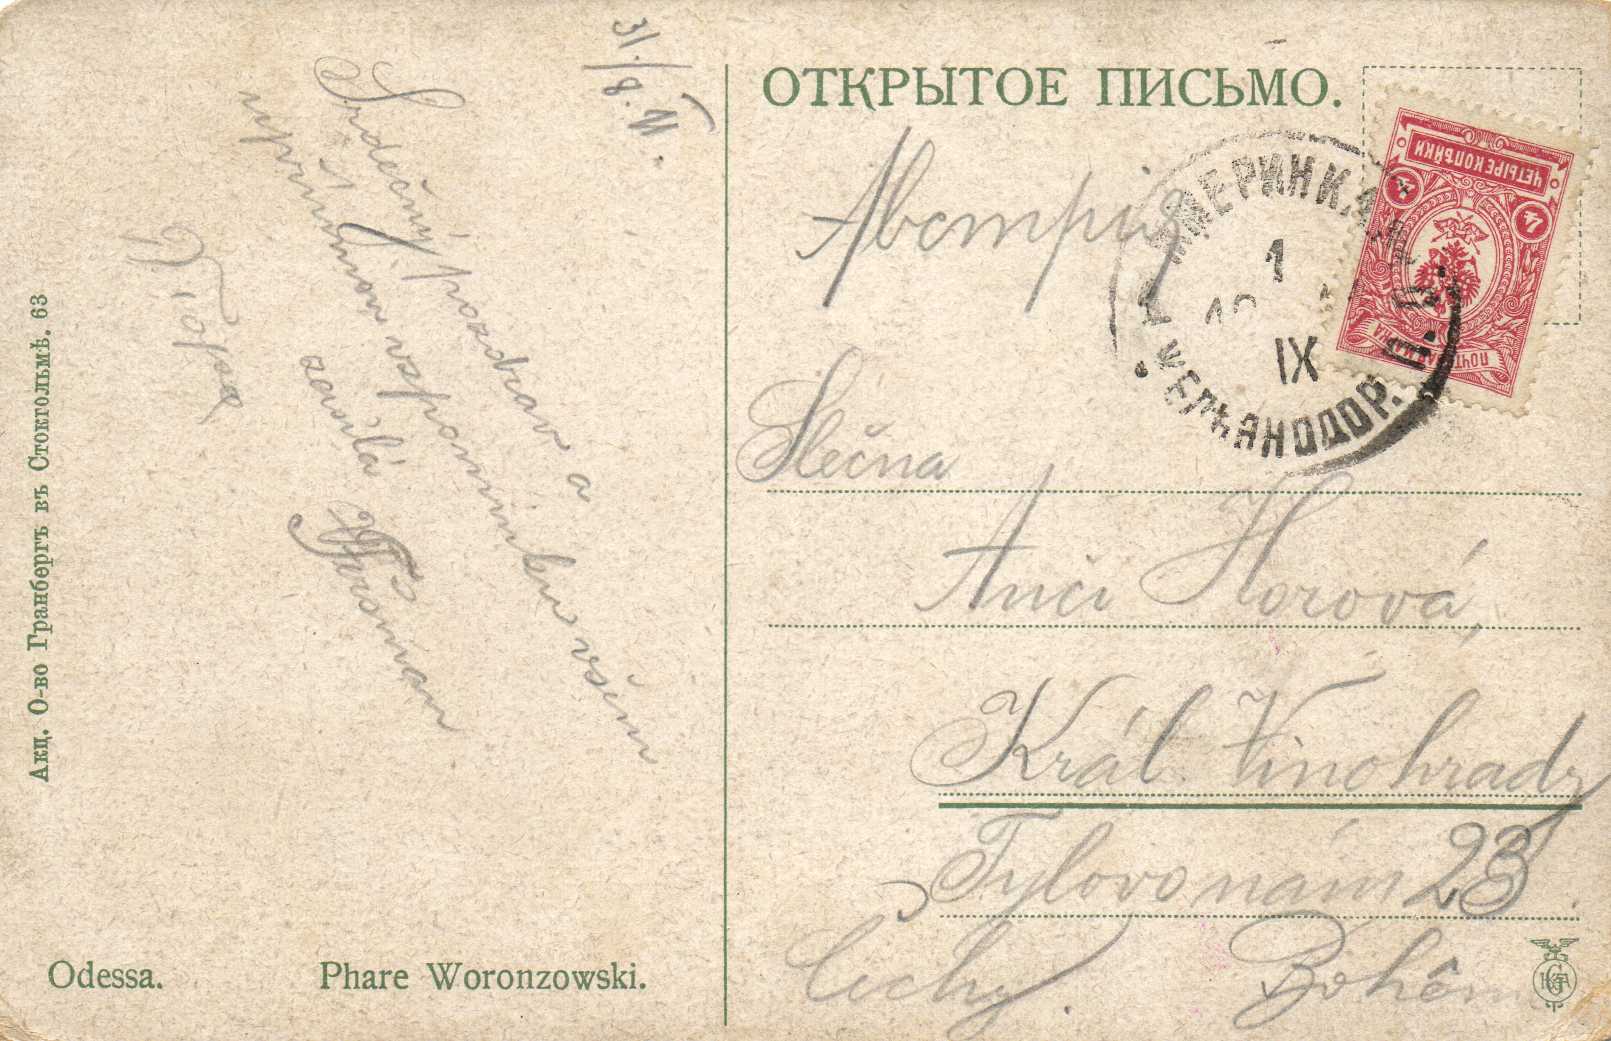 ОТКРЫТОЕ ПИСЬМО.
ЧЕТЫРЕ КОПѢЙКИ
4 4
ПОЧТОВАЯ МАРКА
ЖМЕРИНКА
1
IX
ЖЕЛѢЗНОДОР. П.
Австрія
Slečna
Anči Horová,
Král. Vinohrady
Tylovo nám 23.
Čechy. Böhêm
31./8. 11.
Srdečný pozdrav a
upřímnou vzpomínku všem
zasílá
Odessa. Phare Woronzowski.
Акц. О-во Гранбергъ въ Стокгольмѣ. 63